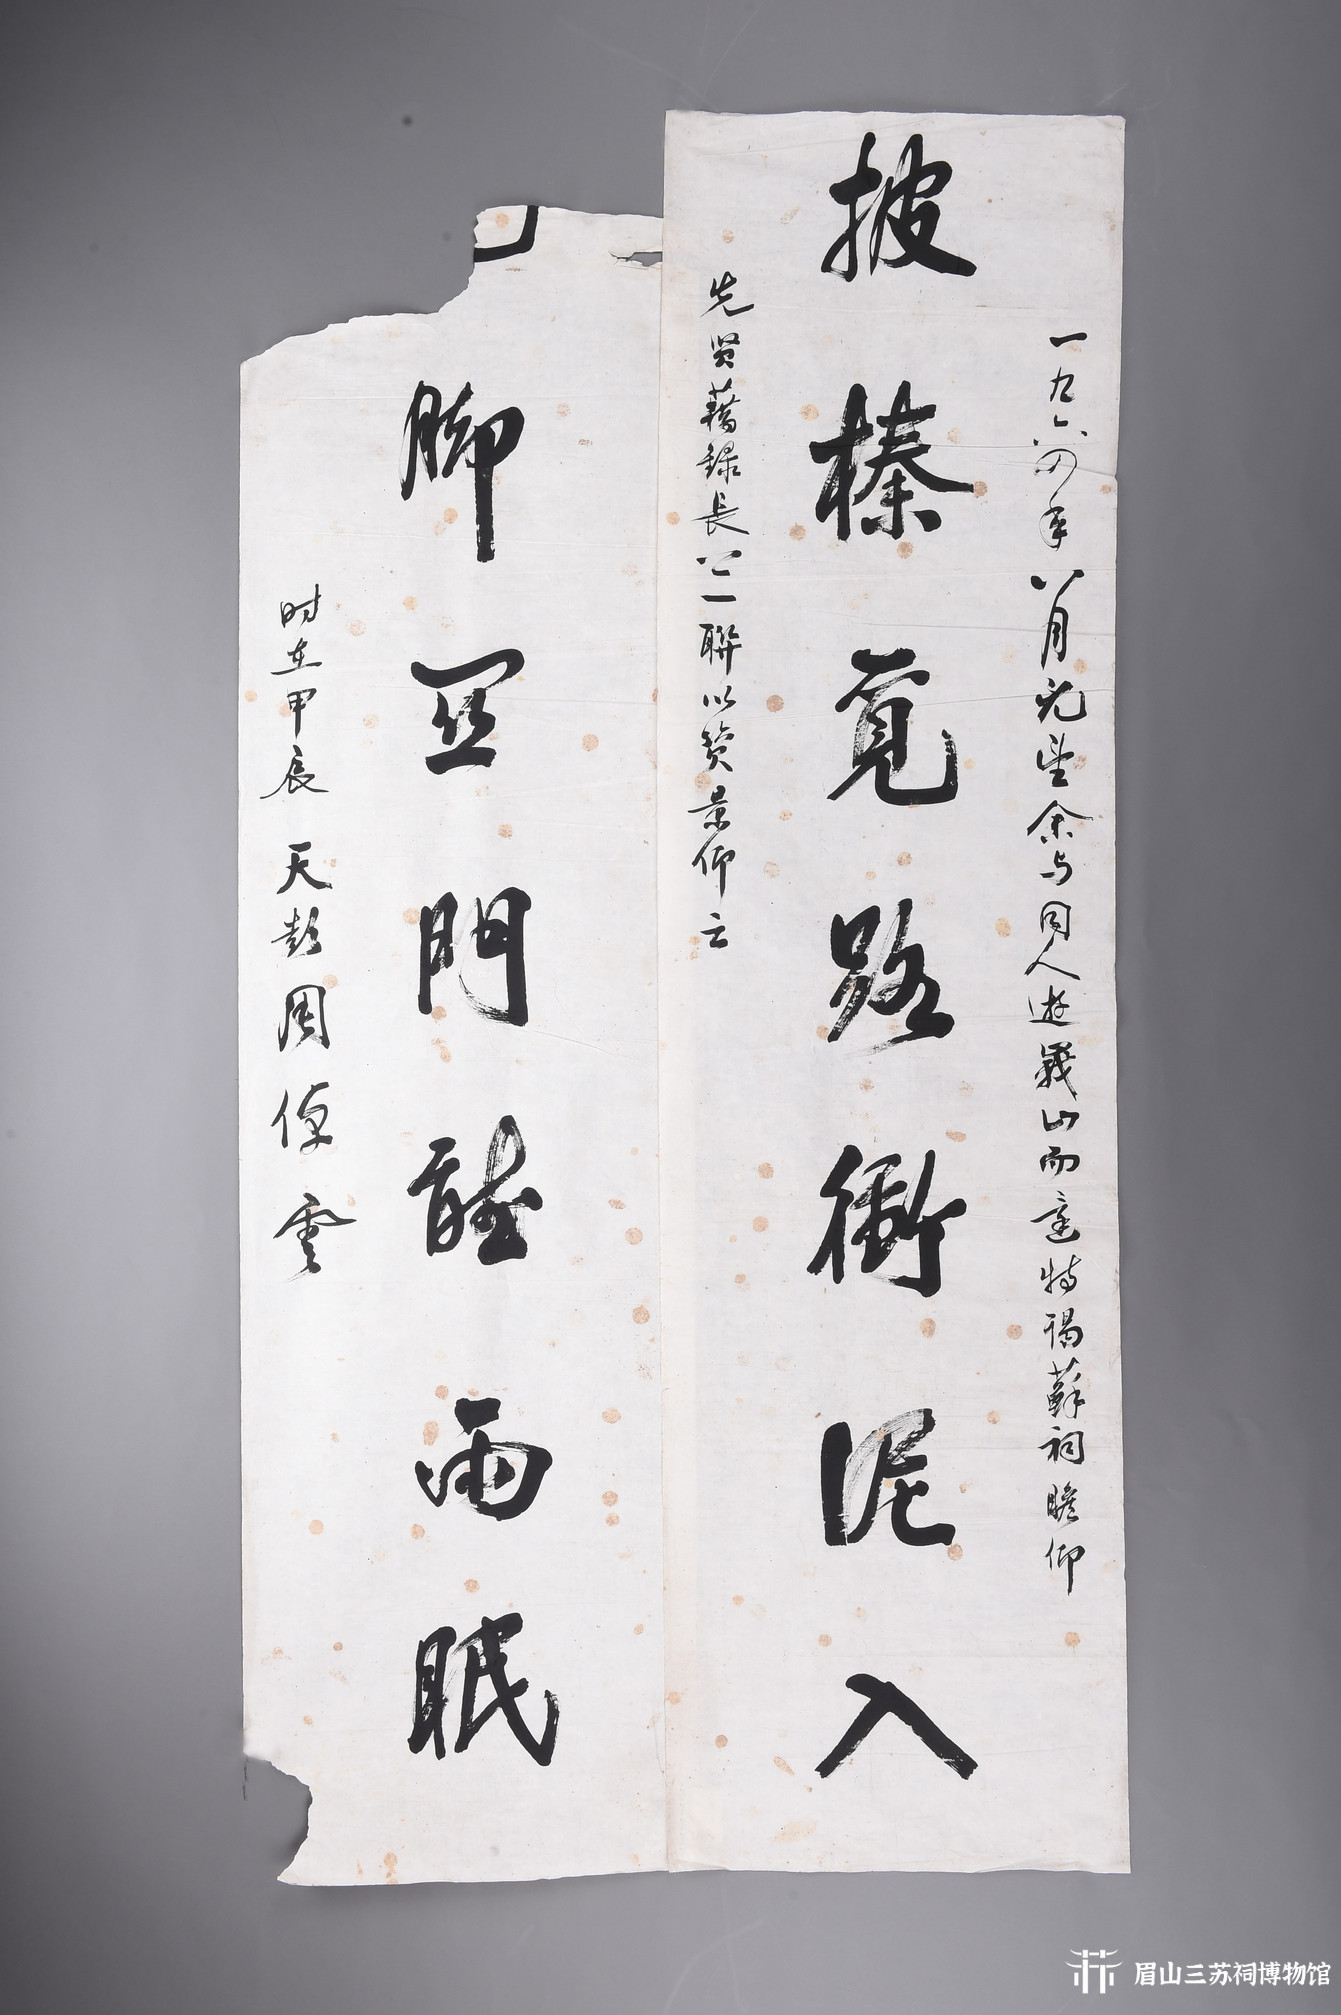 一九六四年八月既望余与同人遊峩山而還特謁蘇祠瞻仰
披榛覓路衝泥入
先贤藉録長公一聯以赞景仰云
脚關門聽雨眠
时在甲辰 天彭周倬雲
眉山三苏祠博物馆